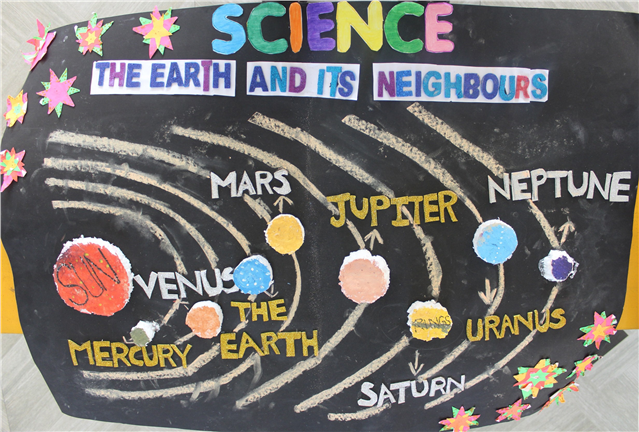 SCIENCE
THE EARTH AND ITS NEIGHBOURS
MARS
JUPITER
NEPTUNE
SUN
VENUS
THE
EARTH
MERCURY
RINGS
URANUS
SATURN